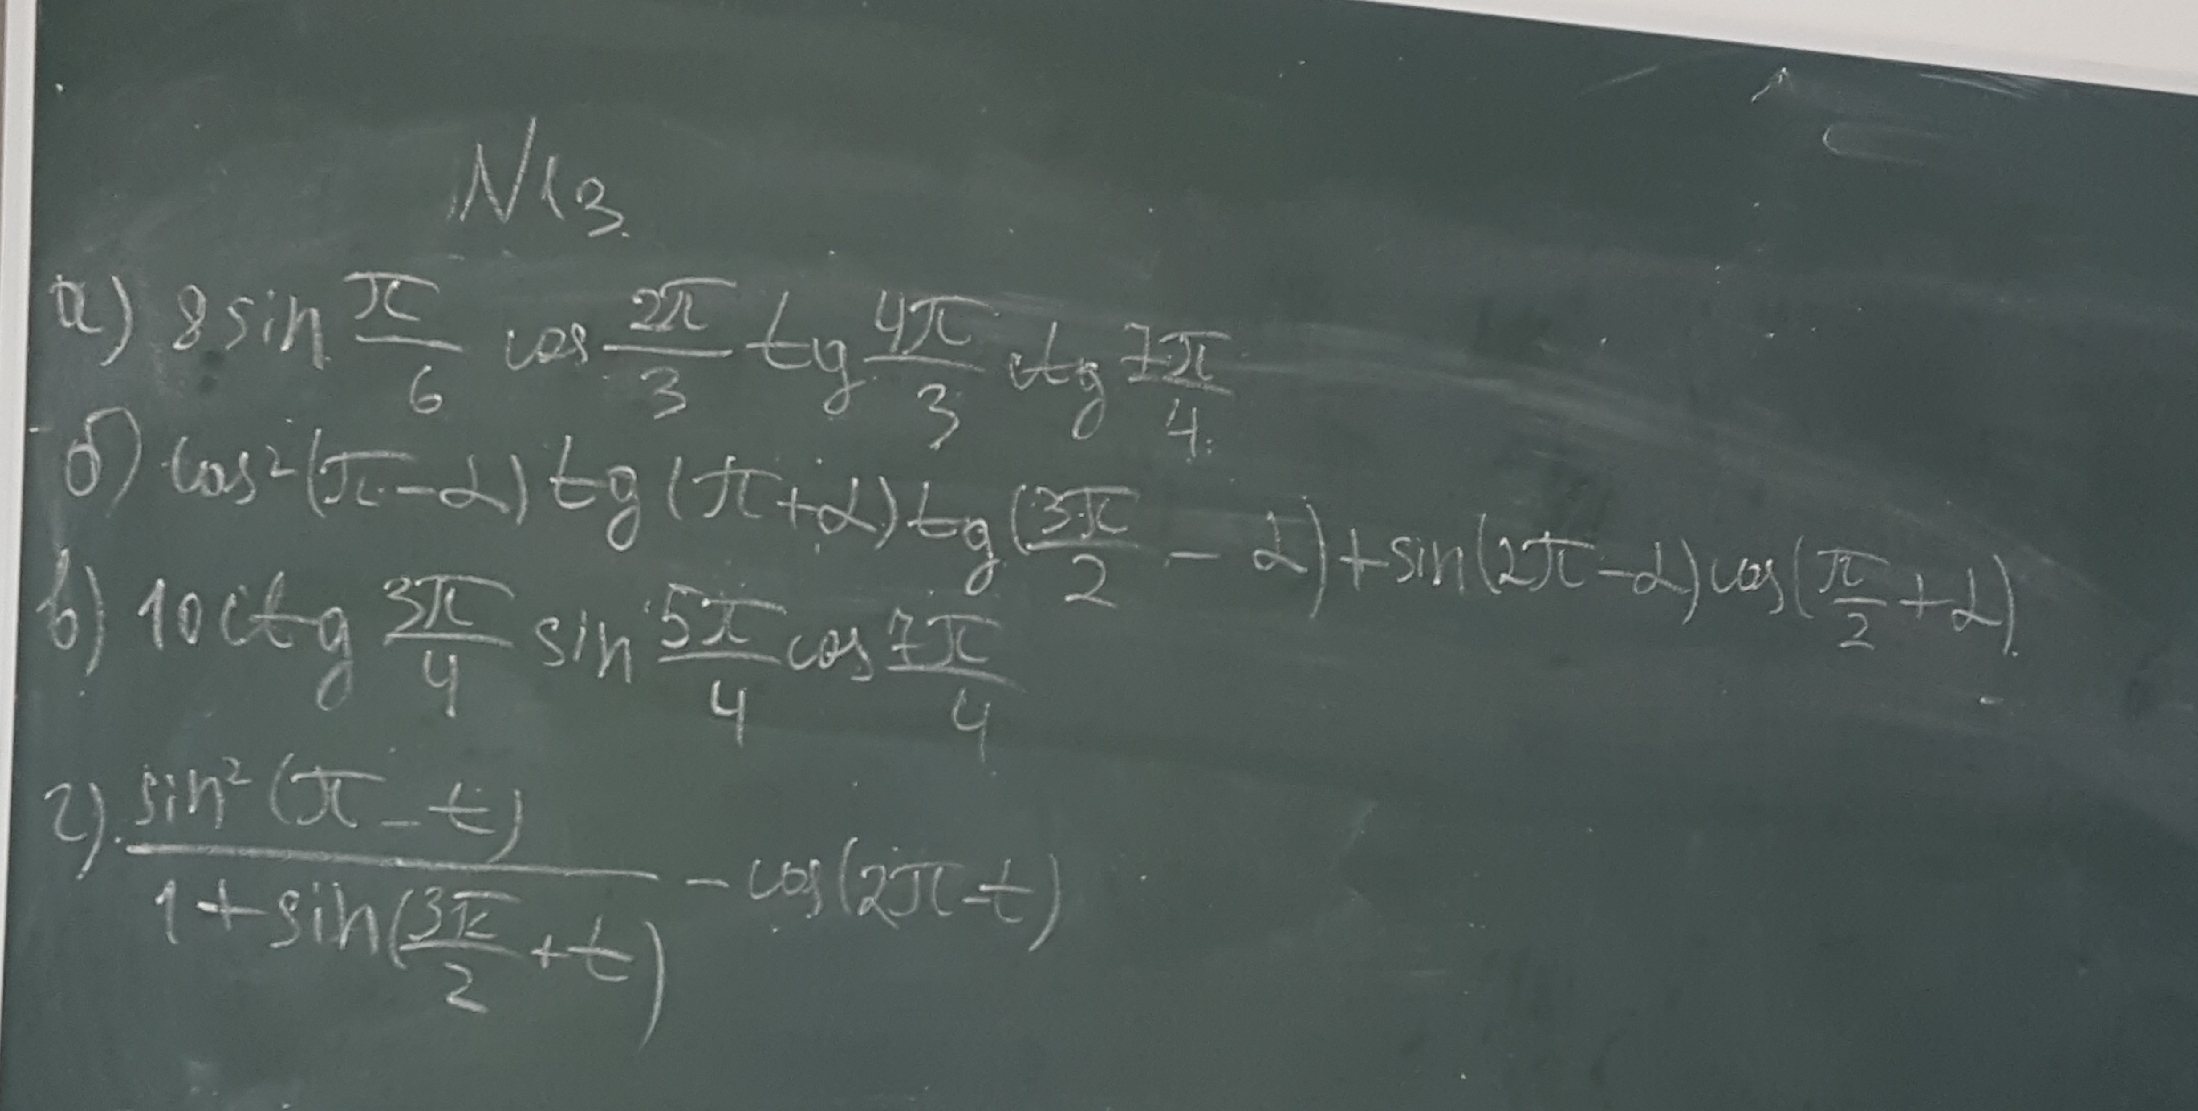 N13
а) 8 sin π/6 cos 2π/3 tg 4π/3 ctg 7π/4
б) cos²(π-α) tg(π+α) tg(3π/2 - α) + sin(2π-α) cos(π/2 + α)
в) 10 ctg 3π/4 sin 5π/4 cos 7π/4
г) sin²(π-t) / 1 + sin(3π/2 + t) - cos(2π-t)